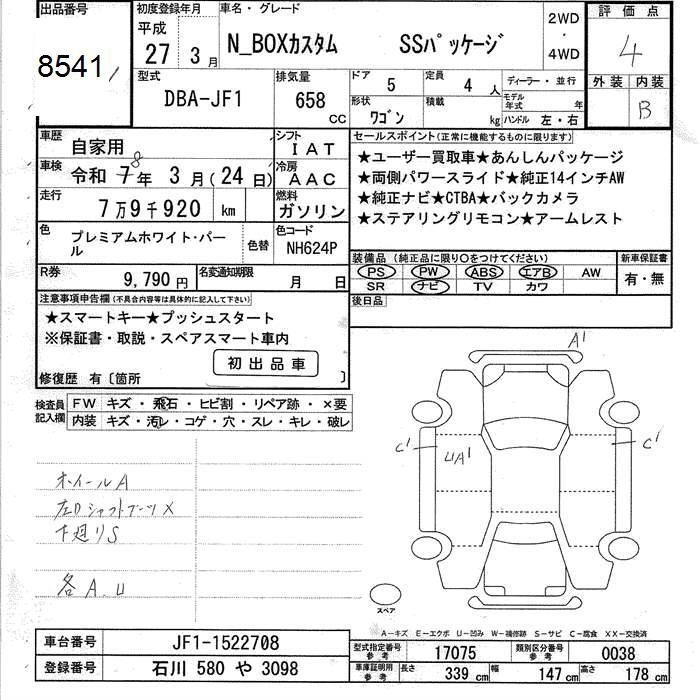 出品番号
8541
初度登録年月
平成
27 3月
車名・グレード
N_BOXカスタム SSパッケージ
2WD
・
4WD
評価点
4
外装 内装
B
型式
DBA-JF1
排気量
658 CC
ドア 5
定員 4 人
ディーラー・並行
形状 ワゴン
積載 kg
モデル年式 年
ハンドル 左・右
車歴 自家用
シフト IAT
車検 令和 7 8 年 3月(24日)
冷房 AAC
走行 7万9千920 km
燃料 ガソリン
色 プレミアムホワイト・パール
色替
色コード NH624P
R券 9,790円
名変通知期限 月 日
セールスポイント(正常に機能するものに限ります)
★ユーザー買取車★あんしんパッケージ
★両側パワースライド★純正14インチAW
★純正ナビ★CTBA★バックカメラ
★ステアリングリモコン★アームレスト
装備品 (純正品に限り○をつけてください)
PS PW ABS エアB AW
SR ナビ TV カワ
新車保証書
有・無
後日品
注意事項申告欄(不具合内容等は具体的に記入して下さい)
★スマートキー★プッシュスタート
※保証書・取説・スペアスマート車内
初出品車
修復歴 有〔箇所 〕
検査員記入欄
FW キズ・飛石・ヒビ割・リペア跡・×要
内装 キズ・汚レ・コゲ・穴・スレ・キレ・破レ
ホイールA
左Dシャフトブーツ×
下廻りS
各A.U
A1
C1
UA1
C1
スペア
A-キズ E-エクボ U-凹み W-補修跡 S-サビ C-腐食 XX-交換済
車台番号 JF1-1522708
登録番号 石川 580 や 3098
型式指定番号 参考 17075
類別区分番号 参考 0038
車庫証明用 参考 長さ 339 cm 幅 147 cm 高さ 178 cm